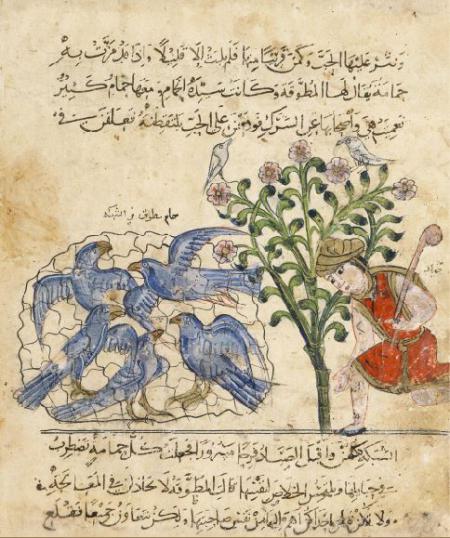 ونثر عليها الحب وكمن قريبا منها فلم يلبث إلا قليلا واذا قد مرت به
حمامة يقال لها المطوقة وكانت سيدة الحمام ومعها حمام كثير
فعميت هي وأصحابها عن الشرك فوقعن على الحب يلتقطنه فعلقن في
حمام مطوق في الشبكة
الشبكة كلهن واقبل الصياد فرحا مسرورا فجعلت كل حمامة تضطرب
في حبايلها وتلتمس الخلاص لنفسها قالت المطوقة لا تخاذلن في المعالجة
ولا تكن نفس احداكن اهم اليها من نفس صاحبتها ولكن نتعاون جميعا فنقلع